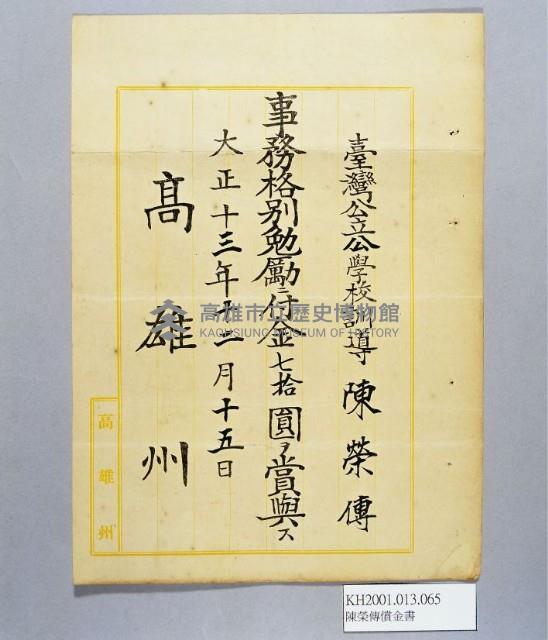 臺灣公立公學校訓導 陳榮傳
事務格別勉勵ニ付金七拾圓ヲ賞與ス
大正十三年十二月十五日
高雄州
高雄州
高雄市立歷史博物館
KAOHSIUNG MUSEUM OF HISTORY
KH2001.013.065
陳榮傳償金書